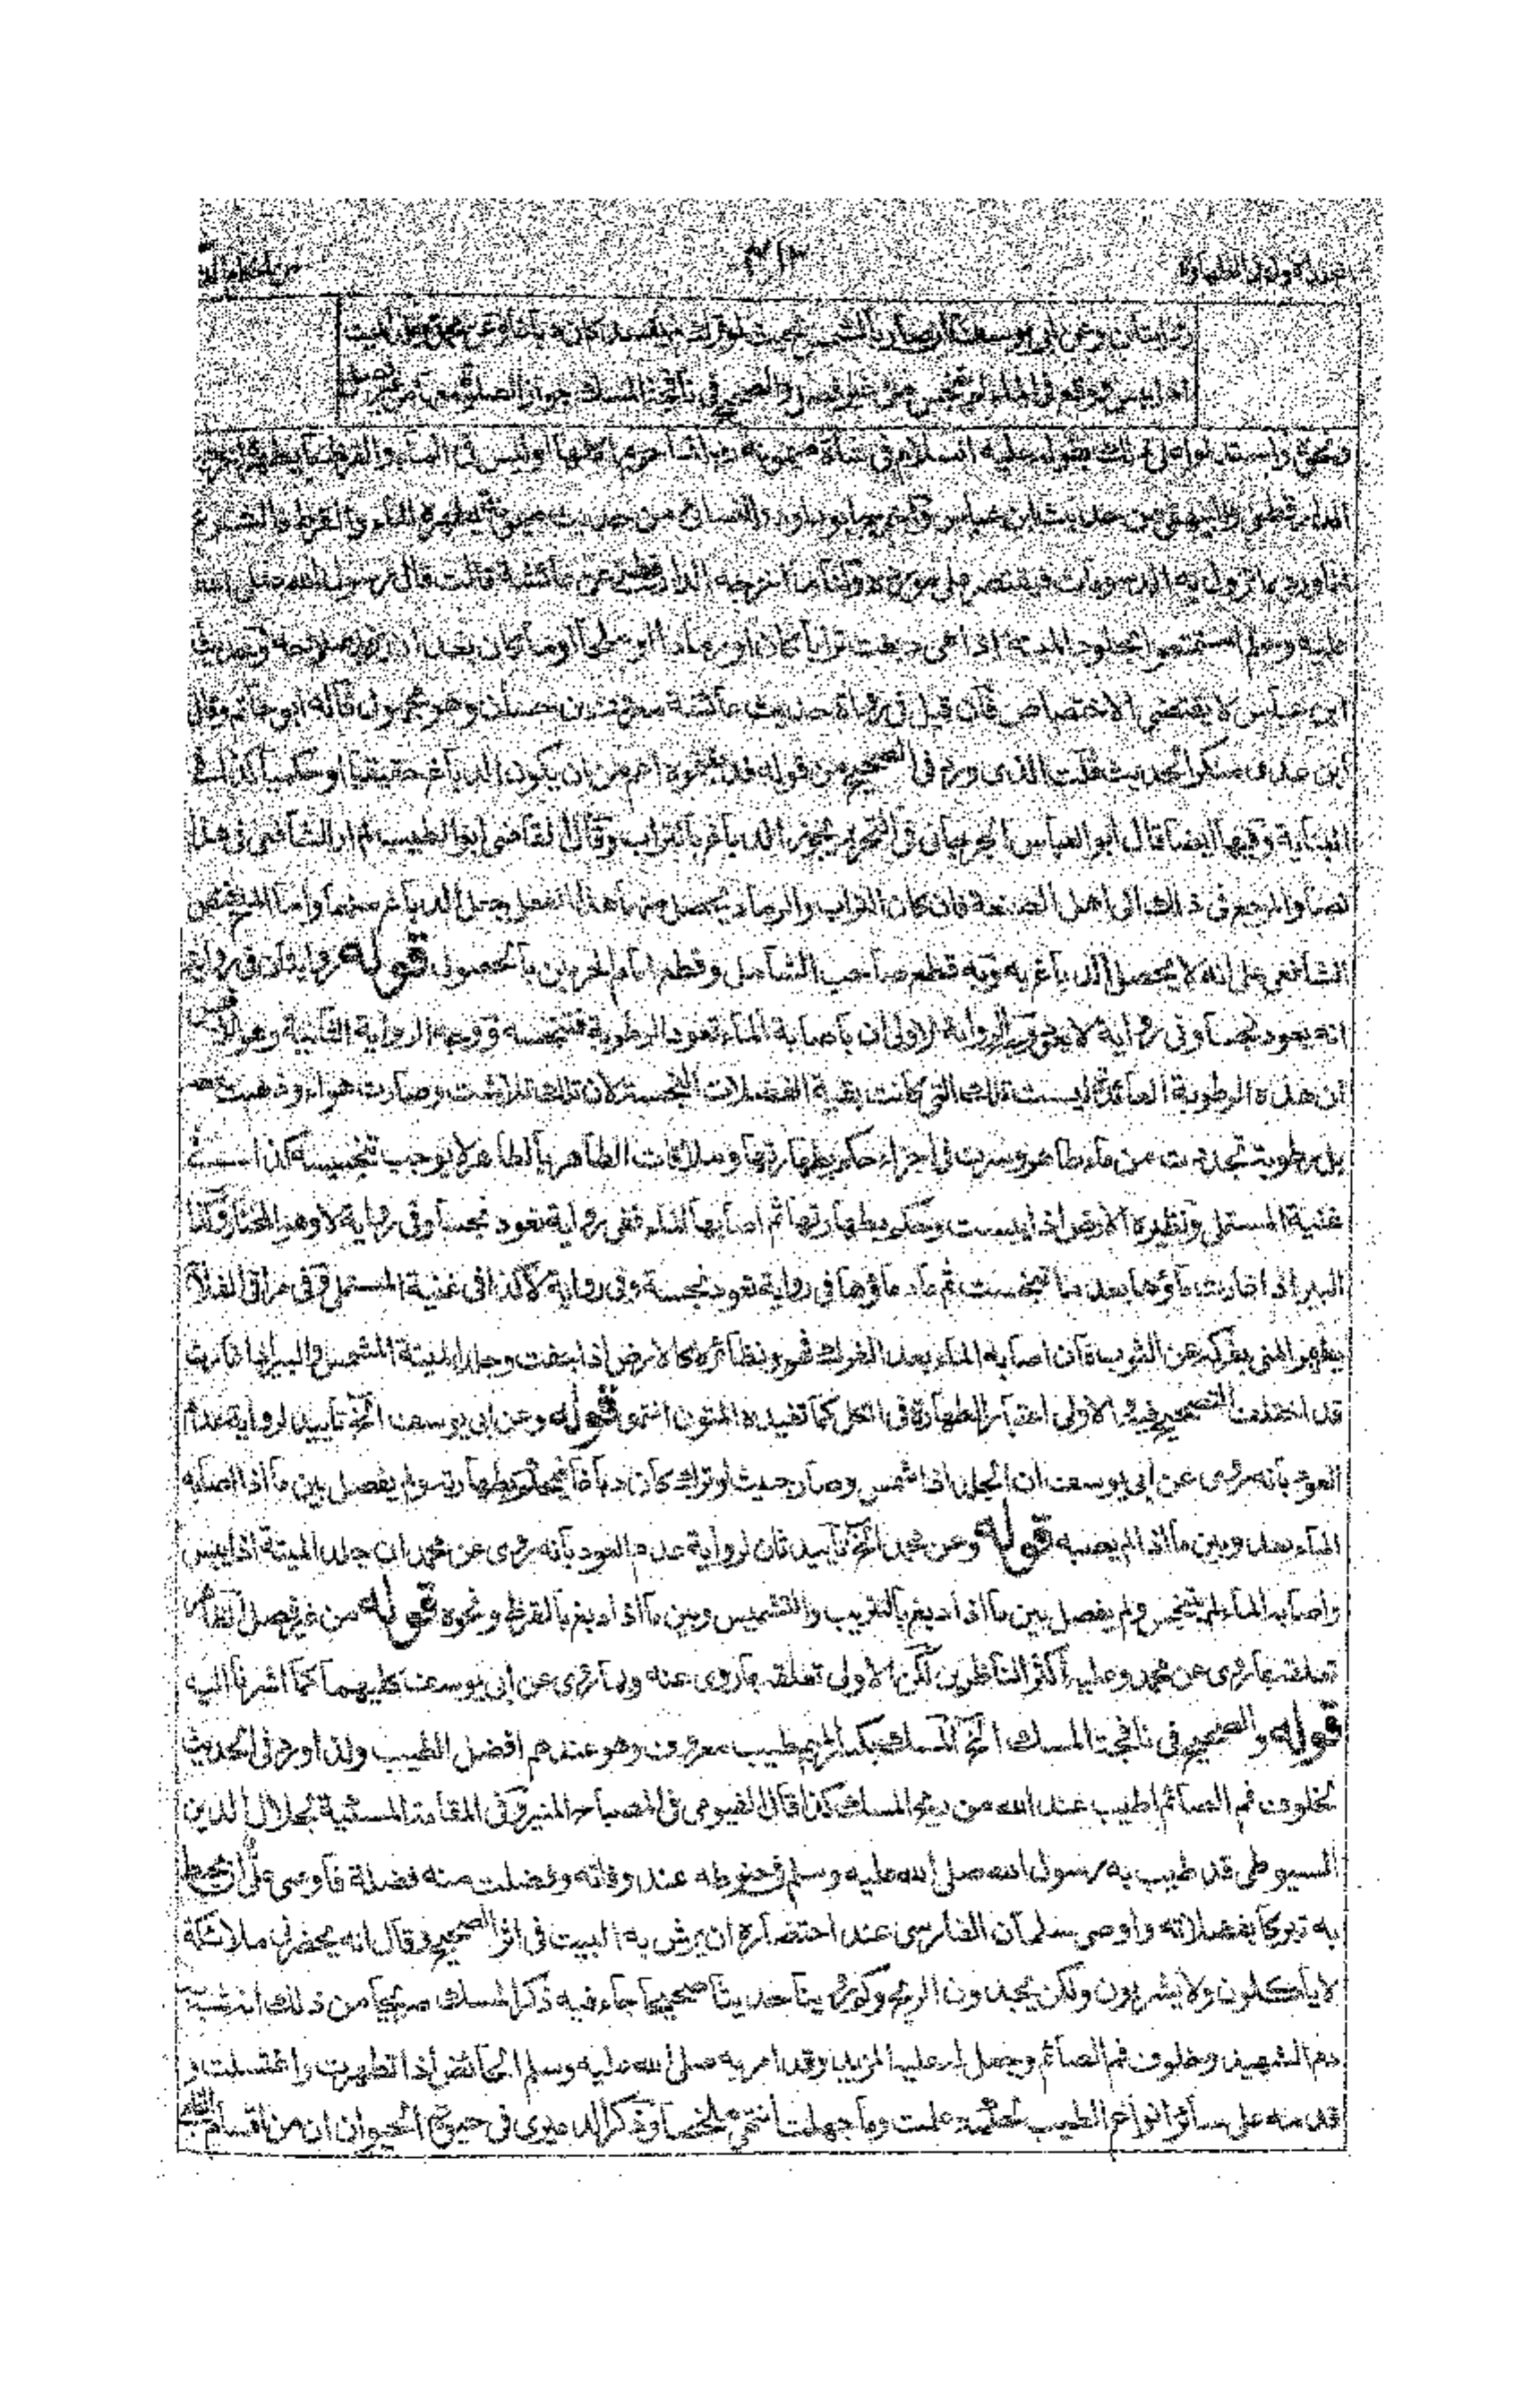 ٤١٣
روايتان وعن ابي يوسف ان صار بالشمس بحيث لو ترك لم يفسد كان دباغا وعن محمد جلد الميتة
اذا يبس ووقع في الماء لم ينجس من غير فصل والصحيح في نافجة المسك جواز الصلوة معها من غير فصل
واستدلوا له في ذلك بقوله عليه السلام في شاة ميمونة انما حرم اكلها اوليس في الماء والقرظ ما يطهره اخرجه
الدارقطني والبيهقي من حديث ابن عباس واخرجه ابوداود والنسائي من حديث ميمونة يطهره الماء والقرظ والشرع
فيقتصر على مورده ولنا ما اخرجه الدارقطني عن عائشة قالت قال رسول الله صلى الله
عليه وسلم استمتعوا بجلود الميتة اذا هي دبغت ترابا كان او رمادا او ملحا او ما كان بعد ان يزيد صلاحه وحديث
ابن عباس لا يقتضي الاختصاص فان قيل في رواة حديث عائشة معروف بن حسان وهو مجهول قاله ابو حاتم وقال
ابن عدي منكر الحديث قلت الذي ورد في الصحيح من قوله فدبغتموه اعم من ان يكون الدباغ حقيقيا او حكميا كذا في
البناية وفيها ايضا قال ابو العباس الجرجاني في التحرير يجوز الدباغ بالتراب وقال القاضي ابو الطيب لم ار للشافعي في هذا
نصا والمرجع في ذلك الى اهل الصنعة فان كان التراب والرماد يحصل منهما هذا الفعل وحصل الدباغ منهما واما الملح فنص
الشافعي على انه لا يحصل الدباغ به وبه قطع صاحب الشامل وقطع امام الحرمين بالحصول قوله روايتان في رواية
انه يعود نجسا وفي رواية لا يعود وجه الرواية الاولى ان باصابة الماء تعود الرطوبة فتنجسه ووجه الرواية الثانية وهو الاقيس
ان هذه الرطوبة العائدة ليست تلك التي كانت بقية الفضلات النجسة لان تلك تلاشت وصارت هواء وذهبت
بل رطوبة تجددت من ماء طاهر وسرت في اجزاء حكم بطهارتها وملاقات الطاهر بالطاهر لا يوجب تنجيسه كذا في
غنية المستملي ونظيره الارض اذا يبست وحكم بطهارتها ثم اصابها الماء ففي رواية تعود نجسا وفي رواية لا وهو المختار وكذا
البير اذا غارت ماؤها بعد ما تنجست ثم عاد ماؤها في رواية تعود نجسة وفي رواية لا كذا في غنية المستملي وفي مراقي الفلاح
يطهر المني بفركه عن الثوب فان اصابه الماء بعد الفرك فهو ونظائره كالارض اذا جفت وجلد الميتة المشمس والبير اذا غارت
قد اختلف التصحيح فيه والاولى اعتبار الطهارة في الكل كما تفيده المتون انتهى قوله وعن ابي يوسف الخ تاييد لرواية عدم
العود بانه روى عن ابي يوسف ان الجلد اذا شمس وصار بحيث لو ترك كان دباغا يحكم بطهارته ولم يفصل بين ما اذا اصابه
الماء بعد وبين ما اذا لم يصبه قوله وعن محمد الخ تاييد ثان لرواية عدم العود بانه روى عن محمد ان جلد الميتة اذا يبس
واصابه الماء لم يتنجس ولم يفصل بين ما اذا دبغ بالتتريب والتشميس وبين ما اذا دبغ بالقرظ ونحوه قوله من غير فصل
تعلقه بما روى عن محمد وعليه اكثر الناظرين لكن الاولى تعلقه بما روى عنه وبما روى عن ابي يوسف كليهما كما اشرنا اليه
قوله والصحيح في نافجة المسك الخ المسك بكسر الميم طيب معروف وهو عندهم افضل الطيب ولذا ورد في الحديث
لخلوف فم الصائم اطيب عند الله من ريح المسك كذا قال الفيومي في المصباح المنير وفي المقامة المسكية لجلال الدين
السيوطي قد طيب به رسول الله صلى الله عليه وسلم في حنوطه عند وفاته وفضلت منه فضلة فاوصى علي ان يحنط
به تبركا بفضلاته واوصى سلمان الفارسي عند احتضاره ان يرش به البيت في اثر الصحيح وقال انه يحضرني ملائكة
لا ياكلون ولا يشربون ولكن يجدون الريح وكم روينا حديثا صحيحا جاء فيه ذكر المسك صريحا من ذلك
دم الشهيد وخلوف فم الصائم وحصل له عليه المزيد وقد امر به صلى الله عليه وسلم الحائض اذا تطهرت واغتسلت و
قدمه على سائر انواع الطيب لحكمة علمت وما جهلت انتهى ملخصا وذكر الدميري في حيوة الحيوان ان من اقسام